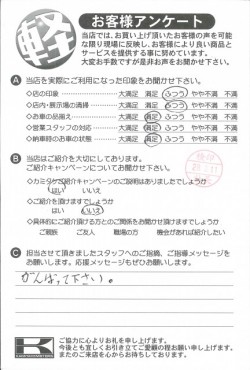 軽
お客様アンケート
当店では、お買い上げ頂いたお客様の声を可能
な限り現場に反映し、お客様により良い商品と
サービスを提供する事に努めています。
大変お手数ですが是非お声をお聞かせ下さい。
A 当店を実際にご利用になった印象をお聞かせ下さい。
◇店の印象 大満足 満足 ふつう やや不満 不満
◇店内・展示場の清掃 大満足 満足 ふつう やや不満 不満
◇お車の品揃え 大満足 満足 ふつう やや不満 不満
◇営業スタッフの対応 大満足 満足 ふつう やや不満 不満
◇納車時のお車の状態 大満足 満足 ふつう やや不満 不満
B 当店はご紹介を大切にしております。
ご紹介キャンペーンについてお聞かせ下さい。
◇カミタケご紹介キャンペーンのご説明はありましたでしょうか
はい いいえ
◇ご紹介を頂けますでしょうか
はい いいえ
◇具体的にご紹介頂ける方とのご関係をお聞かせ頂けますでしょうか
ご親族 ご友人 職場の方 機会があれば紹介したい
C 担当させて頂きましたスタッフへのご指摘、ご指導メッセージを
お願いします。応援メッセージもぜひお願いします。
がんばって下さい。
K
ご協力に心よりお礼を申し上げます。
今後とも宜しくお引き立てご愛顧の程お願い申し上げます。
またのご来店を心からお待ちしております。